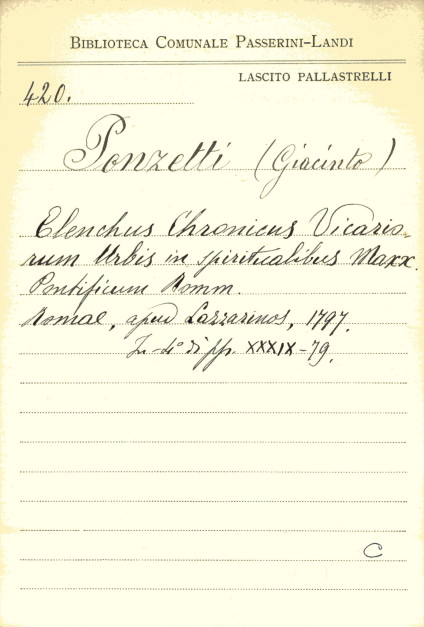 BIBLIOTECA COMUNALE PASSERINI-LANDI
LASCITO PALLASTRELLI
420.
Ponzetti (Giacinto)
Elenchus Chronicus Vicario-
rum Urbis in spiritualibus Maxx.
Pontificum Romm.
Romae, apud Lazzarinos, 1797.
In-4° di pp. XXXIX-79.
C